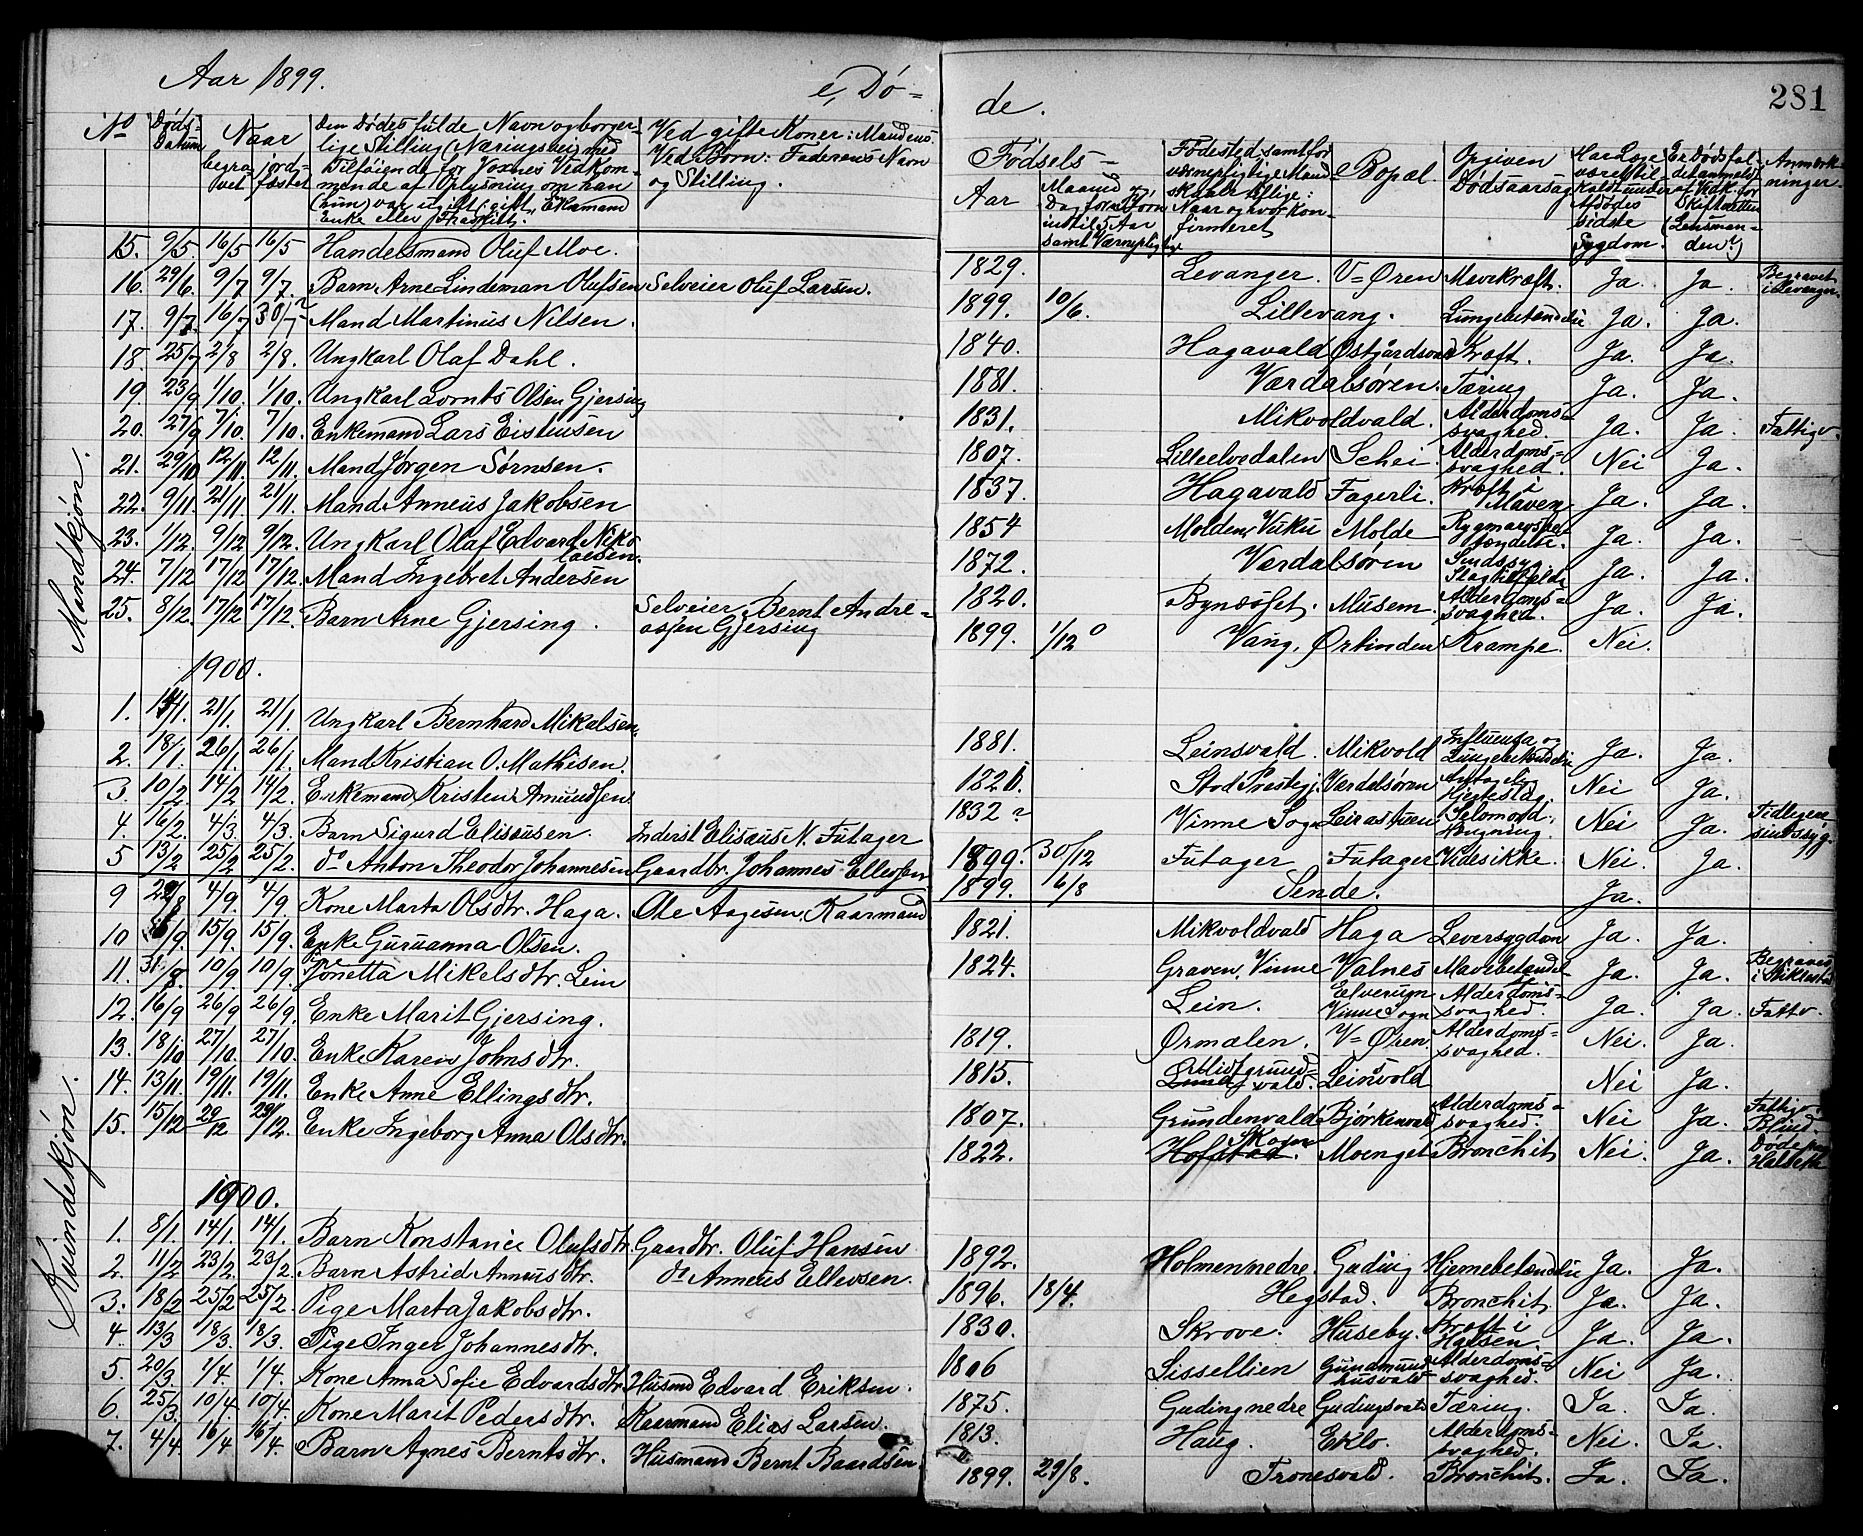 Aar 1899. e, Dø-
No
Døds-
Datum
Naar
begra-
vet
jord-
fæstet
Den Dødes fulde Navn og borger-
lige Stilling (Næringsvei) med
Tilføiende for Voxnes Vedkom-
mende af Oplysning om han
(hun) var ugift, gift, Ekemand
Enke eller Fraskilt.
Ved gifte Koner: Mandens
Ved Børn: Faderens Navn
og Stilling.
Mandkjøn.
15. 9/5. 16/5 16/5 Handelsmand Oluf Moe.
16. 29/6. 9/7 9/7. Barn Arne Lindeman Olufsen Selveier Oluf Larsen.
17. 9/7. 16/7 30/7 ? Mand Martinus Nilsen.
18. 25/7 2/8 2/8. Ungkarl Olaf Dahl.
19 23/9 1/10. 1/10. Ungkarl Lornts Olsen Gjersing
20. 27/9 7/10. 7/10. Enkemand Lars Eistensen
21. 29/10 12/11. 12/11. Mand Jørgen Sørnsen.
22. 9/11 21/11 21/11. Mand Anneus Jakobsen
23. 1/12. 9/12 9/12. Ungkarl Olaf Edvard Niko-
laisen.
24. 7/12 17/12 17/12. Mand Ingebret Andersen
25. 8/12. 17/12 17/12. Barn Arne Gjersing. Selveier Bernt Andre-
assen Gjersing
1900.
1. 14/1. 21/1. 21/1. Ungkarl Bernhard Mikalsen.
2. 18/1. 26/1. 26/1. Mand Kristian O. Mathisen.
3. 10/2. 14/2 14/2. Enkemand Kristen Amundsen
4. 16/2. 4/3. 4/3. Barn Sigurd Elisæusen. Inderst Elisæus N. Futager
5 13/2 25/2 25/2. do Anton Theodor Johannesen Gaardbr. Johannes Ellevsen
Kvindekjøn.
9 29/8 4/9. 4/9 Kone Marta Olsdtr. Haga. Ole Aagesen, Kaarmand
10 /9. 15/9. 15/9. Enke Guruanna Olsen.
11. 31/8. 10/9. 10/9. Jonetta Mikelsdtr. Lein
12. 16/9 26/9 26/9. Enke Marit Gjersing.
13. 18/10 27/10. 27/10. Enke Karen Johnsdtr.
14. 13/11. 19/11. 19/11. Enke Anne Ellingsdtr.
15. 15/12 29/12 29/12. Enke Ingeborg Anna Olsdtr.
1900.
1. 8/1. 14/1. 14/1. Barn Konstance Olufsdtr. Gaardbr. Oluf Hansen
2. 11/2 23/2. 23/2. Barn Astrid Anneusdtr. do Anneus Ellevsen.
3. 18/2 25/2 25/2. Pige Marta Jakobsdtr.
4. 13/3 18/3. 18/3. Pige Inger Johannesdtr.
5. 20/3. 1/4. 1/4. Kone Anna Sofie Edvardsdtr Husmd Edvard Eriksen.
6. 25/3. 10/4. 10/4. Kone Marit Pedersdtr. Kaarmand Elias Larsen.
7. 4/4 16/4 16/4. Barn Agnes Berntsdtr. Husmand Bernt Baardsen
de. 281
Fødsels-
Aar
Maaned og
Dag for Børn
indtil 5 Aar
samt Værnepligtige
Fødested, samt for
værnepligtige Mand-
skaber tillige:
Naar og hvor kon-
firmeret
Bopæl.
Opgiven
Dødsaarsag
Har Læge
været til-
kaldt under
Afdødes
sidste
Sygdom.
Er Dødsfal-
det anmeldt
af Vedk. for
Skifteretten
(Lensman-
den?)
Anmærk-
ninger.
1829. Levanger. V-Øren Mavekræft. Ja. Ja. Begravet
i Levanger.
1899. 10/6. Lillevang. Lungebetændelse Ja. Ja.
1840. Hagavald Østgårdsvald Kræft. Ja. Ja.
1881. Værdalsøren. Tæring Ja. Ja.
1831. Mikvoldvald. Alderdoms-
svaghed. Ja. Ja. Fattigv.
1807. Lilleelvedalen Schei. Alderdoms-
svaghed. Nei Ja.
1837. Hagavald Fagerli. Kræft i
Maven Ja. Ja.
1854 Molden, Vuku Molde Rygmarvsbe-
tændelse. Ja. Ja.
1872. Værdalsøren Sindssyg.
Slagtilfælde Ja. Ja.
1820. Bynæsset. Musem. Alderdoms-
svaghed. Ja. Ja.
1899. 1/12 Vang, Ørtinden Krampe. Nei.
1881. Leinsvald. Mikvold Influensa og
Lungebetændelse Ja. Ja.
Stod Prestegj. Værdalsøren Antagelig
Hjerteslag. Nei Ja.
1832 ? Vinne Sogn Leirastuen Selvmord,
Hengning. Nei Ja. Tidligere
sindssyg.
1899. 30/12 Futager Futager Vides ikke. Nei. Ja.
1899. 16/8 Sende. Ja.
1821. Mikvoldvald Haga Leversygdom Ja. Ja.
1824. Graven, Vinne Valnes Mavebetændel- Ja. Ja. Begraves
i Stiklestad
Lein. Elverum
Vinne Sogn Alderdoms-
svaghed. Ja. Ja. Fattv.
1819. Ørmælen. V-Øren. Alderdoms-
svaghed. Nei. Ja.
1815. vald. Leinsvold Nei Ja.
1807. Grundenvald Bjørkenvald Alderdoms-
svaghed. Nei Ja. Fattigv.
Blind.
1822. Skogn
Hofstad. Moenget Bronchit Nei. Ja. Døde paa
1892. Holmen nedre. Guding Hjernebetændelse Ja. Ja.
1896. 18/4. Hegstad. Bronchit. Ja. Ja.
1830. Skrove. Huseby. Kræft i
Halsen. Ja. Ja.
1806 Sissellien Gundmund-
husvald Alderdoms-
svaghed. Nei Ja.
1875. Guding nedre Gudingsvald Tæring. Ja. Ja.
1813. Haug. Eklo. Alderdoms-
svaghed. Nei. Ja.
1899. 29/8. Tronesvald. Bronchit. Ja. Ja.